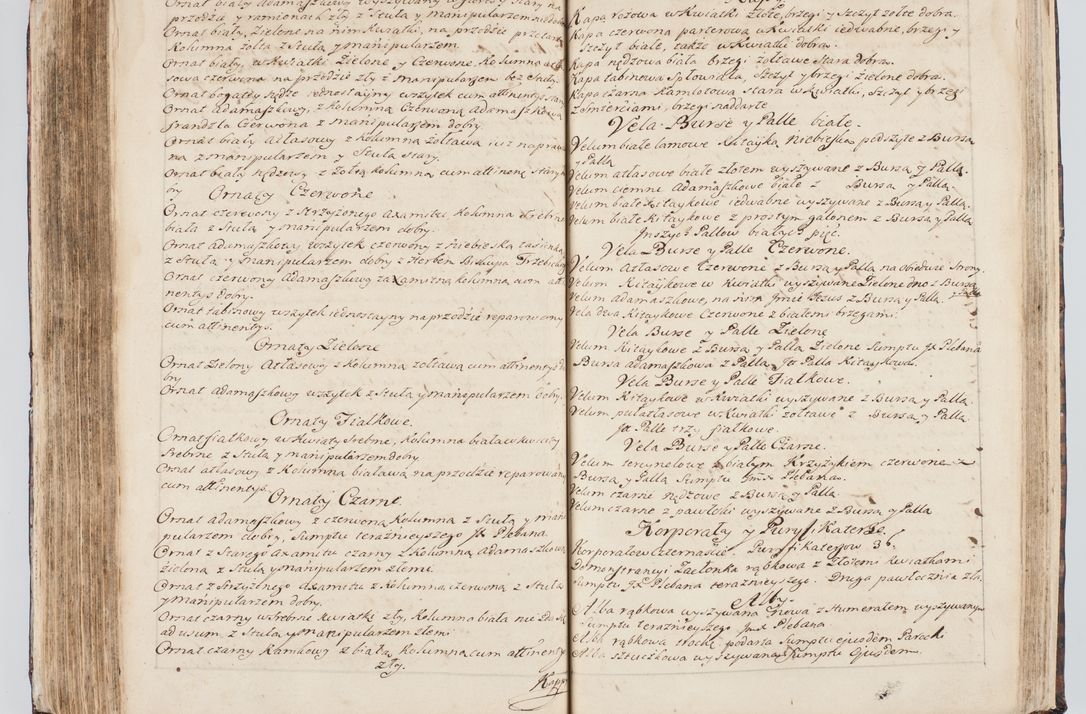 Ornat biały Adamaszkowy wyszywany
przodzie y ramionach zły z Stułą y manipularzem
Ornat biały, Zielona na nim Kwiatki, na przodzie przetarty
Kolumna zołta z Stułą y manipularzem
Ornat biały, w Kwiatki Zielone y Czerwone, Kolumna
sowa czerwona na przodzie zły z Manipularzem bez Stuły
Ornat bogaty wszytek cum attinentys stary
Ornat adamaszkowy, z Kolumną Czerwoną Adamaszkową
frandzla Czerwona z Manipularzem dobry
Ornat biały Atłasowy z Kolumną zołtawą iuz napra
na z manipularzem y Stułą Stary
Ornat biała nędzowy z zołtą Kolumną cum attinen:
by
Ornaty Czerwone
Ornat czerwony z Strzyzonego Axamitu Kolumna srebrna
biała z Stułą y manipularzem dobry.
Ornat Adamaszkowy wszytek czerwony z niebieską tasiemką
z Stułą y Manipularzem dobry z Herbem Biskupa Trzebickiego
Ornat czerwony Adamaszkowy za Kamitną kolumną cum atti
nentys dobry.
Ornat tabinowy wszytek iednostayny na przodzie reparowany
cum attinentys.
Ornaty Zielone
Ornat Zielony Atłasowy z Kolumną zołtawą cum attinentys do
bry
Ornat Adamaszkowy wszytek z Stułą y manipularzem dobry.
Ornaty Fiałkowe.
Ornat fiałkowy w Kwiaty Srebrne, Kolumna biała w kwiaty
Srebrne z Stułą y manipularzem dobry
Ornat atłasowy z Kolumną białawą na przodzie reparowany
cum attinentys
Ornaty Czarne
Ornat Adamaszkowy z czerwoną Kolumną z Stułą y mani
pularzem dobry, Sumptu teraznieyszego JX Plebana
Ornat z Starego Axamitu czarny z Kolumną Adamaszkową
zieloną z Stułą y manipularzem zlemi
Ornat z Strzyzonego Axamitu z Kolumną czerwoną z Stułą
y manipularzem dobry.
Ornat czarny w srebrne kwiatki zły, Kolumna biała
ad usum, z Stułą y manipularzem zlemi
Ornat czarny Kamkowy z białą Kolumną cum attinenty
zły.
Kapy

Kapa rozowa w Kwiatki złote, brzegi y Szczyt zołte dobra.
Kapa czerwona parterowa w Kwiatki iedwabne, brzegi y
Szczyt białe, także w Kwiatki dobra.
Kapa nędzowa biała brzegi zołtawe Stara dobra.
Kapa tabinowa Spłowiała, Szczyt y brzegi Zielone dobra.
Kapa czarna Kamlotowa stara w Kwiatki, Szczyt y brzegi
z śmierciami, brzegi naddarte
Vela Burse y Palle białe.
Velum białe lamowe Kitayką niebieską podszyte z Bursą
y Pallą
Velum atłasowe białe złotem wyszywane z Bursą y Pallą.
Velum ciemne Adamaszkowe białe z Bursą y Pallą.
Velum białe Kitaykowe iedwabne wyszywane z Bursą y Pallą.
Velum białe Kitaykowe z prostym galonem z Bursą y Pallą
Inszych Pallow białych pięć.
Vela Burse y Palle Czerwone.
Velum Atłasowe Czerwone z Bursą y Pallą na obiedwie Strony.
Velum Kitaykowe w Kwiatki wyszywane Zielone dno z Bursą
y Pallą
Velum Adamaszkowe, na nim Jmie Jezus z Bursą y Pallą
Vela dwa Kitaykowe Czerwone z białemi brzegami.
Vela Burse y Palle Zielone
Velum Kitaykowe z Bursą y Pallą Zielone Sumptu JX Plebana
Bursa Adamaszkowa z Pallą, It Palla Kitaykowa
Vela Burse y Palle Fiałkowe.
Velum Kitaykowe w Kwiatki wyszywane z Bursą y Pallą
Velum pułatłasowe w Kwiatki zołtawe z Bursą y Pallą
Jt Palle trzy fiałkowe.
Vela Burse y Palle Czarne.
Velum tercynelowe z białym Krzyżykiem czerwone z
Bursą y Pallą Sumptu Jmx Plebana.
Velum czarne nędzowe z Bursą y Pallą
Velum czarne z pawłoki wyszywane z Bursą y Pallą
Korporały y Puryfikaterze.
Korporałow Czternaście, Puryfikaterzow 36.
Do monstrancyi Zasłonka rąbkowa z Złotemi kwiatkami
Sumptu JX Plebana teraznieyszego. Druga pawłocznia zła.
Alby.
Alba rąbkowa wyszywana Nowa z Humerałem wyszywanym
Sumptu teraznieyszego Jmx Plebana.
Alba rąbkowa trochę podarta Sumptu ejusdem Parochi
Alba sztuczkowa wyszywana Sumptu Ejusdem